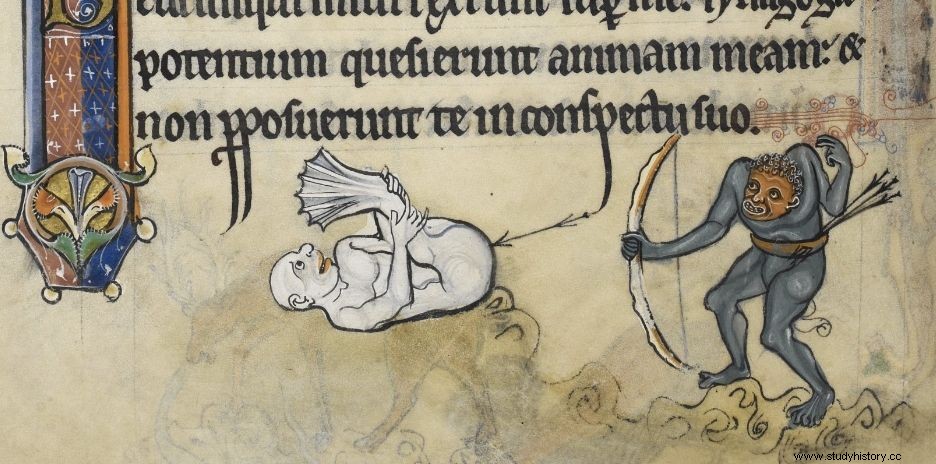 iniqui me: synagoga
potentium quesierunt animam meam: &
non pposuerunt te in conspectu suo.
www.studyhistory.cc